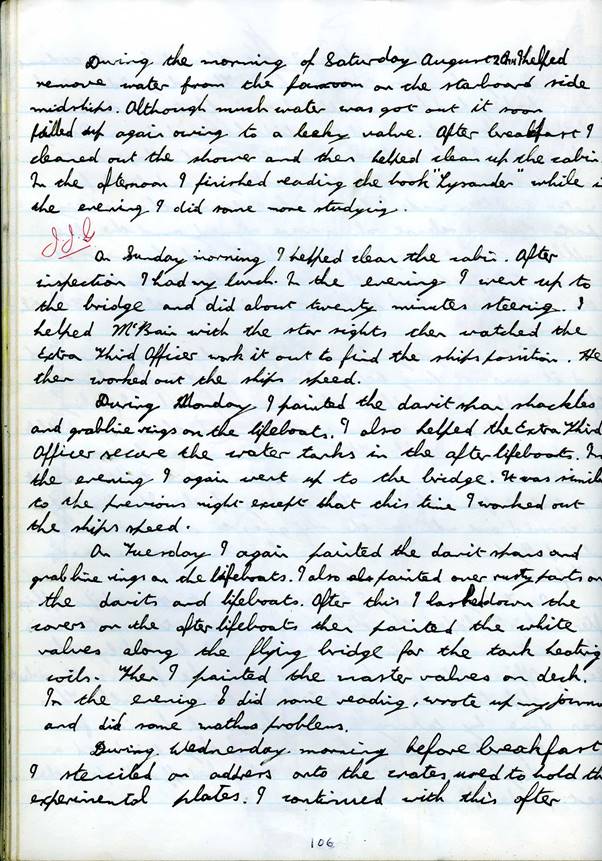 During the morning of Saturday August 28th I helped
remove water from the on the starboard side
midships. Although much water was got out it soon
filled up again owing to a leaky valve. After breakfast I
cleaned out the shower and then helped clean up the cabin.
In the afternoon I finished reading the book "Lysander" while i
the evening I did some more studying.
J.J.G
On Sunday morning I helped clean the cabin. After
inspection I had my lunch. In the evening I went up to
the bridge and did about twenty minutes steering. I
helped McBain with the star sights then watched the
Extra Third Officer work it out to find the ships position. He
then worked out the ships speed.
During Monday I painted the davit span shackles
and grabline rings on the lifeboats. I also helped the Extra Third
Officer secure the water tanks in the after lifeboats. In
the evening I again went up to the bridge. It was simila
to the previous night except that this time I worked out
the ships speed.
On Tuesday I again painted the davit spans and
grabline rings on the lifeboats. I also also painted over rusty parts on
the davits and lifeboats. After this I lashed down the
covers on the after lifeboats then painted the white
valves along the flying bridge for the tank heating
coils. Then I painted the master valves on deck.
In the evenig I did some reading, wrote up my journa
and did some maths problems.
During Wednesday morning before breakfast
I stenciled an address onto the crates used to hold th
experimental plates. I continued with this after
106